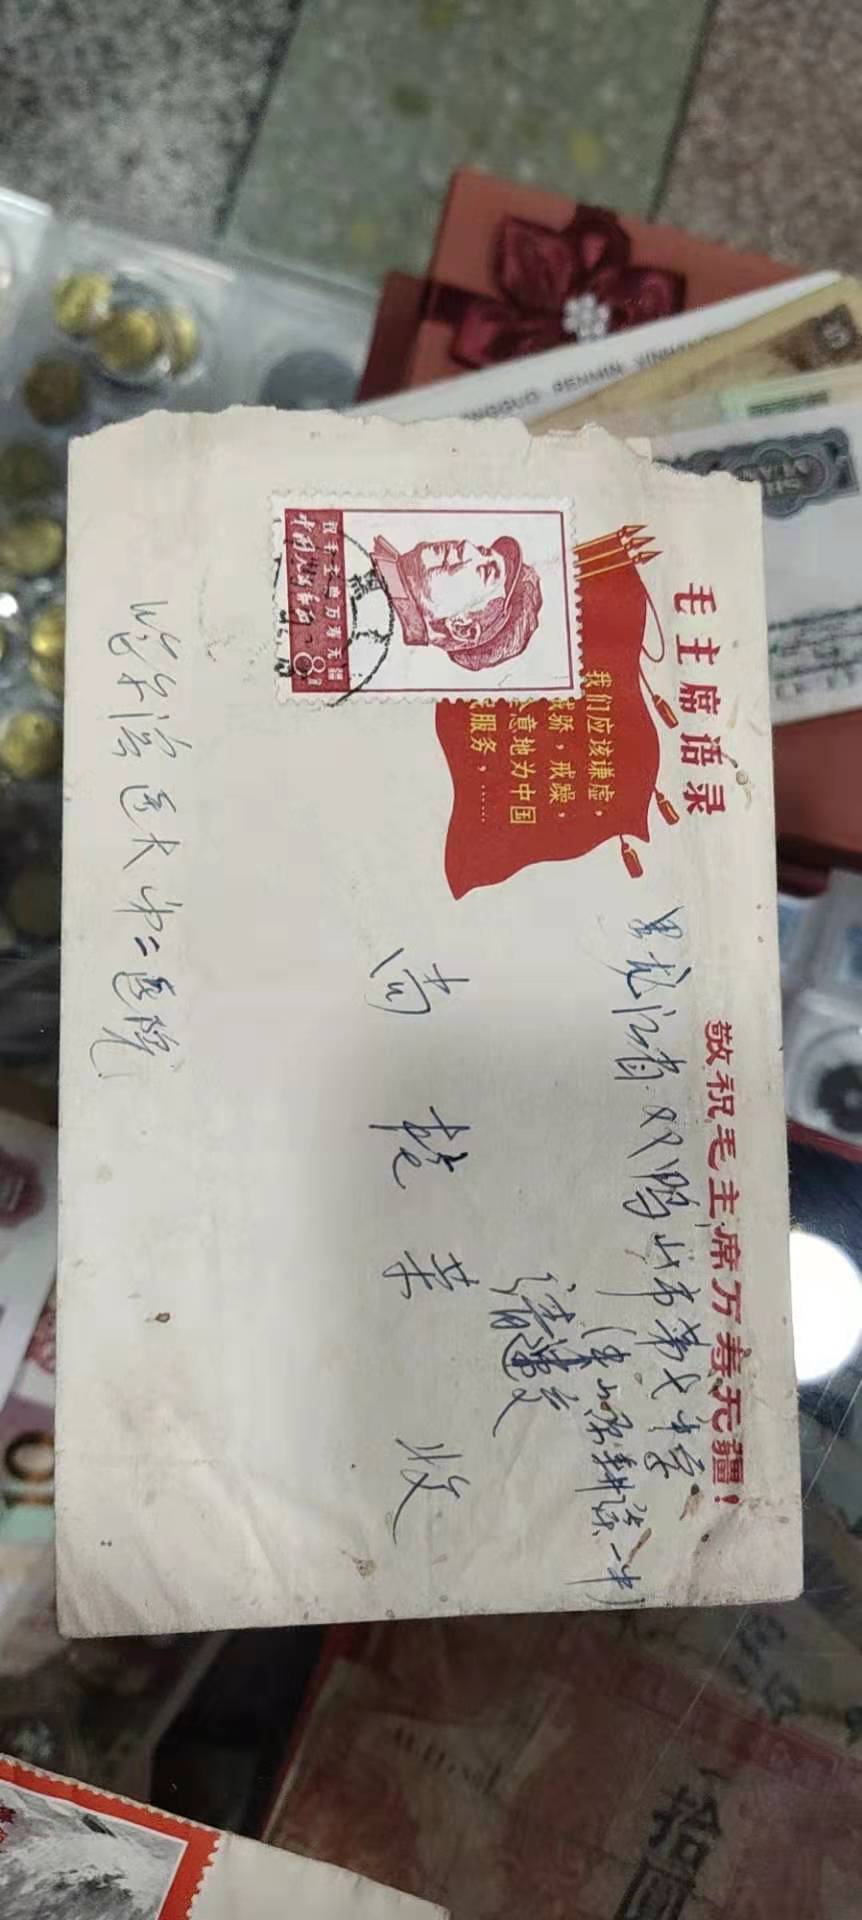 毛主席语录
敬祝毛主席万寿无疆!
我们应该谦虚,
戒骄,戒躁,
意地为中国
服务,……
祝毛主席万寿无疆
中国人民邮政
8分
黑龙江省双鸭山市第七中学
尚
荣 收
哈尔滨医大第二医院
拾圆